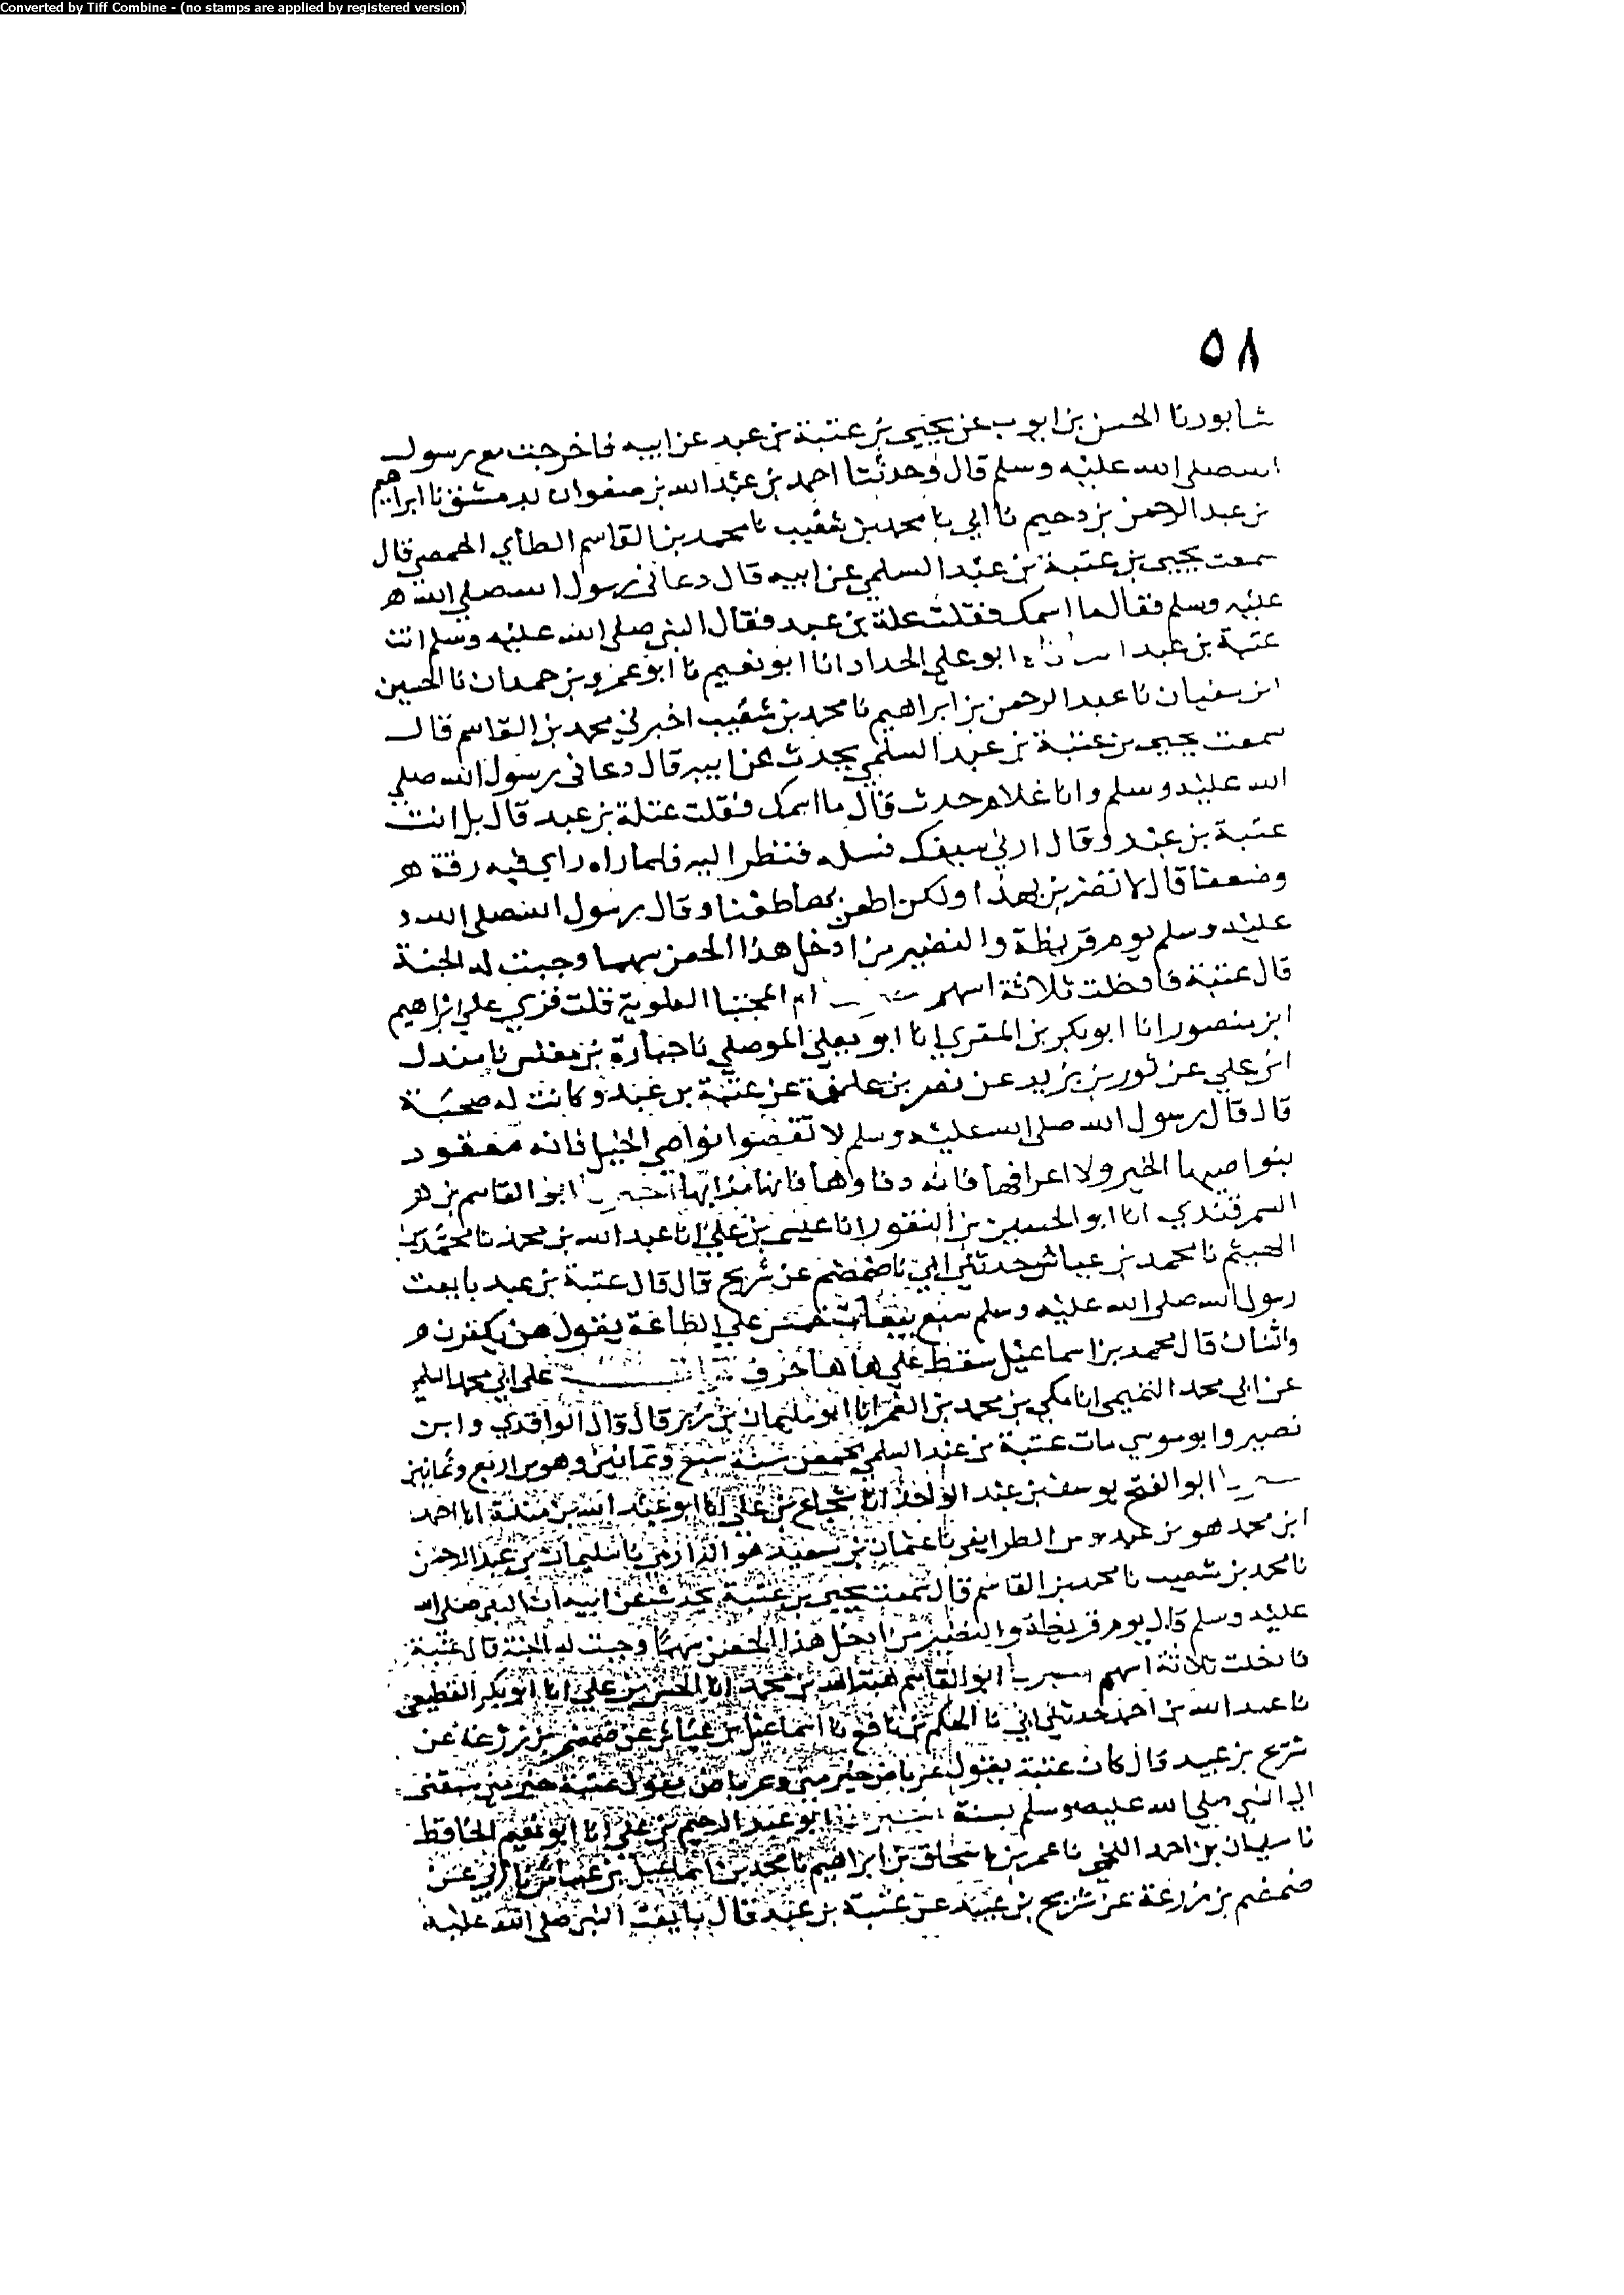 Converted by Tiff Combine - (no stamps are applied by registered version)
٥٨
شابور نا الحسن بن ايوب عن يحيى بن عتبة بن عبد عن ابيه فا خرجت مع رسول
الله صلى الله عليه وسلم قال وحدثنا احمد بن عبد الله بن صفوان بدمشق نا ابراهيم
بن عبد الرحمن بن دحيم نا ابي نا محمد بن شعيب نا محمد بن القاسم الطاي الحمصي قال
سمعت يحيى بن عتبة بن عبد السلمي عن ابيه قال دعاني رسول الله صلى الله
عليه وسلم فقال ما اسمك فقلت علة بن عبد فقال النبي صلى الله عليه وسلم انت
عتبة بن عبد ابو علي الحداد انا ابو نعيم نا ابو عمرو بن حمدان نا الحسين
ابن سفيان نا عبد الرحمن بن ابراهيم نا محمد بن شعيب اخبرني محمد بن القاسم قال
سمعت يحيى بن عتبة بن عبد السلمي يحدث عن ابيه قال دعاني رسول الله صلى
الله عليه وسلم وانا غلام حدث فقال ما اسمك فقلت عتلة بن عبد قال بل انت
عتبة بن عبد وقال ارني سيفك فسله فنظر اليه فلما راه راي فيه رقة
وضعفا قال لا تضربن بهذا ولكن اطعن به طعنا وقال رسول الله صلى الله
عليه وسلم يوم قريظة والنضير من ادخل هذا الحصن سهما وجبت له الجنة
قال عتبة فادخلت ثلاثة اسهم ام المجتبا العلوية قالت قري علي ابراهيم
ابن منصور انا ابو بكر بن المقري انا ابو يعلى الموصلي نا جبارة بن مغلس نا مندل
ابن علي عن ثور بن يزيد عن نصر بن علقمة عن عتبة بن عبد وكانت له صحبة
قال قال رسول الله صلى الله عليه وسلم لا تقصوا نواصي الخيل فانه معقود
بنواصيها الخير ولا اعرافها فانه دفاوها فانها مذابها اخبرنا ابو القاسم بن
السمرقندي انا ابو الحسين بن النقور انا عيسى بن علي انا عبد الله بن محمد نا محمد بن
الهيثم نا محمد بن عياش حدثني ابي نا ضمضم عن شريح قال قال عتبة بن عبد بايعت
رسول الله صلى الله عليه وسلم سبع بيعات خمس علي الطاعة
واثنان قال محمد بن اسماعيل سقط علي ها هنا حرف علي ابي محمد السلمي
عن ابي محمد التميمي انا مكي بن محمد بن الغمر انا ابو سليمان بن زبر قال قال الواقدي وابن
نصير وابو موسى مات عتبة بن عبد السلمي بحمص سنة سبع وثمانين وهو بن اربع وثمانين
ابو الفتح يوسف بن عبد الواحد انا شجاع بن علي انا ابو عبد الله بن مندة انا احمد
ابن محمد هو بن عبدوس الطرايفي نا عثمان بن سعيد هو الدارمي نا سليمان بن عبد الرحمن
نا محمد بن شعيب نا محمد بن القاسم قال سمعت يحيى بن عتبة يحدث عن ابيه ان النبي صلى الله
عليه وسلم قال يوم قريظة والنضير من ادخل هذا الحصن سهما وجبت له الجنة قال عتبة
فادخلت ثلاثة اسهم اخبرنا ابو القاسم هبة الله بن محمد انا الحسن بن علي انا ابو بكر القطيعي
نا عبد الله بن احمد حدثني ابي نا الحكم بن نافع نا اسماعيل بن عياش عن ضمضم بن زرعة عن
شريح بن عبيد قال كان عتبة يقول عرباض خير مني وعرباض يقول عتبة خير مني سبقني
الي النبي صلى الله عليه وسلم بسنة اخبرنا ابو عبد الرحيم بن علي انا ابو نعيم الحافظ
نا سليمان بن احمد اللخمي نا عمر بن اسحاق بن ابراهيم نا محمد بن اسماعيل بن عياش نا ابي عن
ضمضم بن زرعة عن شريح بن عبيد عن عتبة بن عبد قال بايعت النبي صلى الله عليه